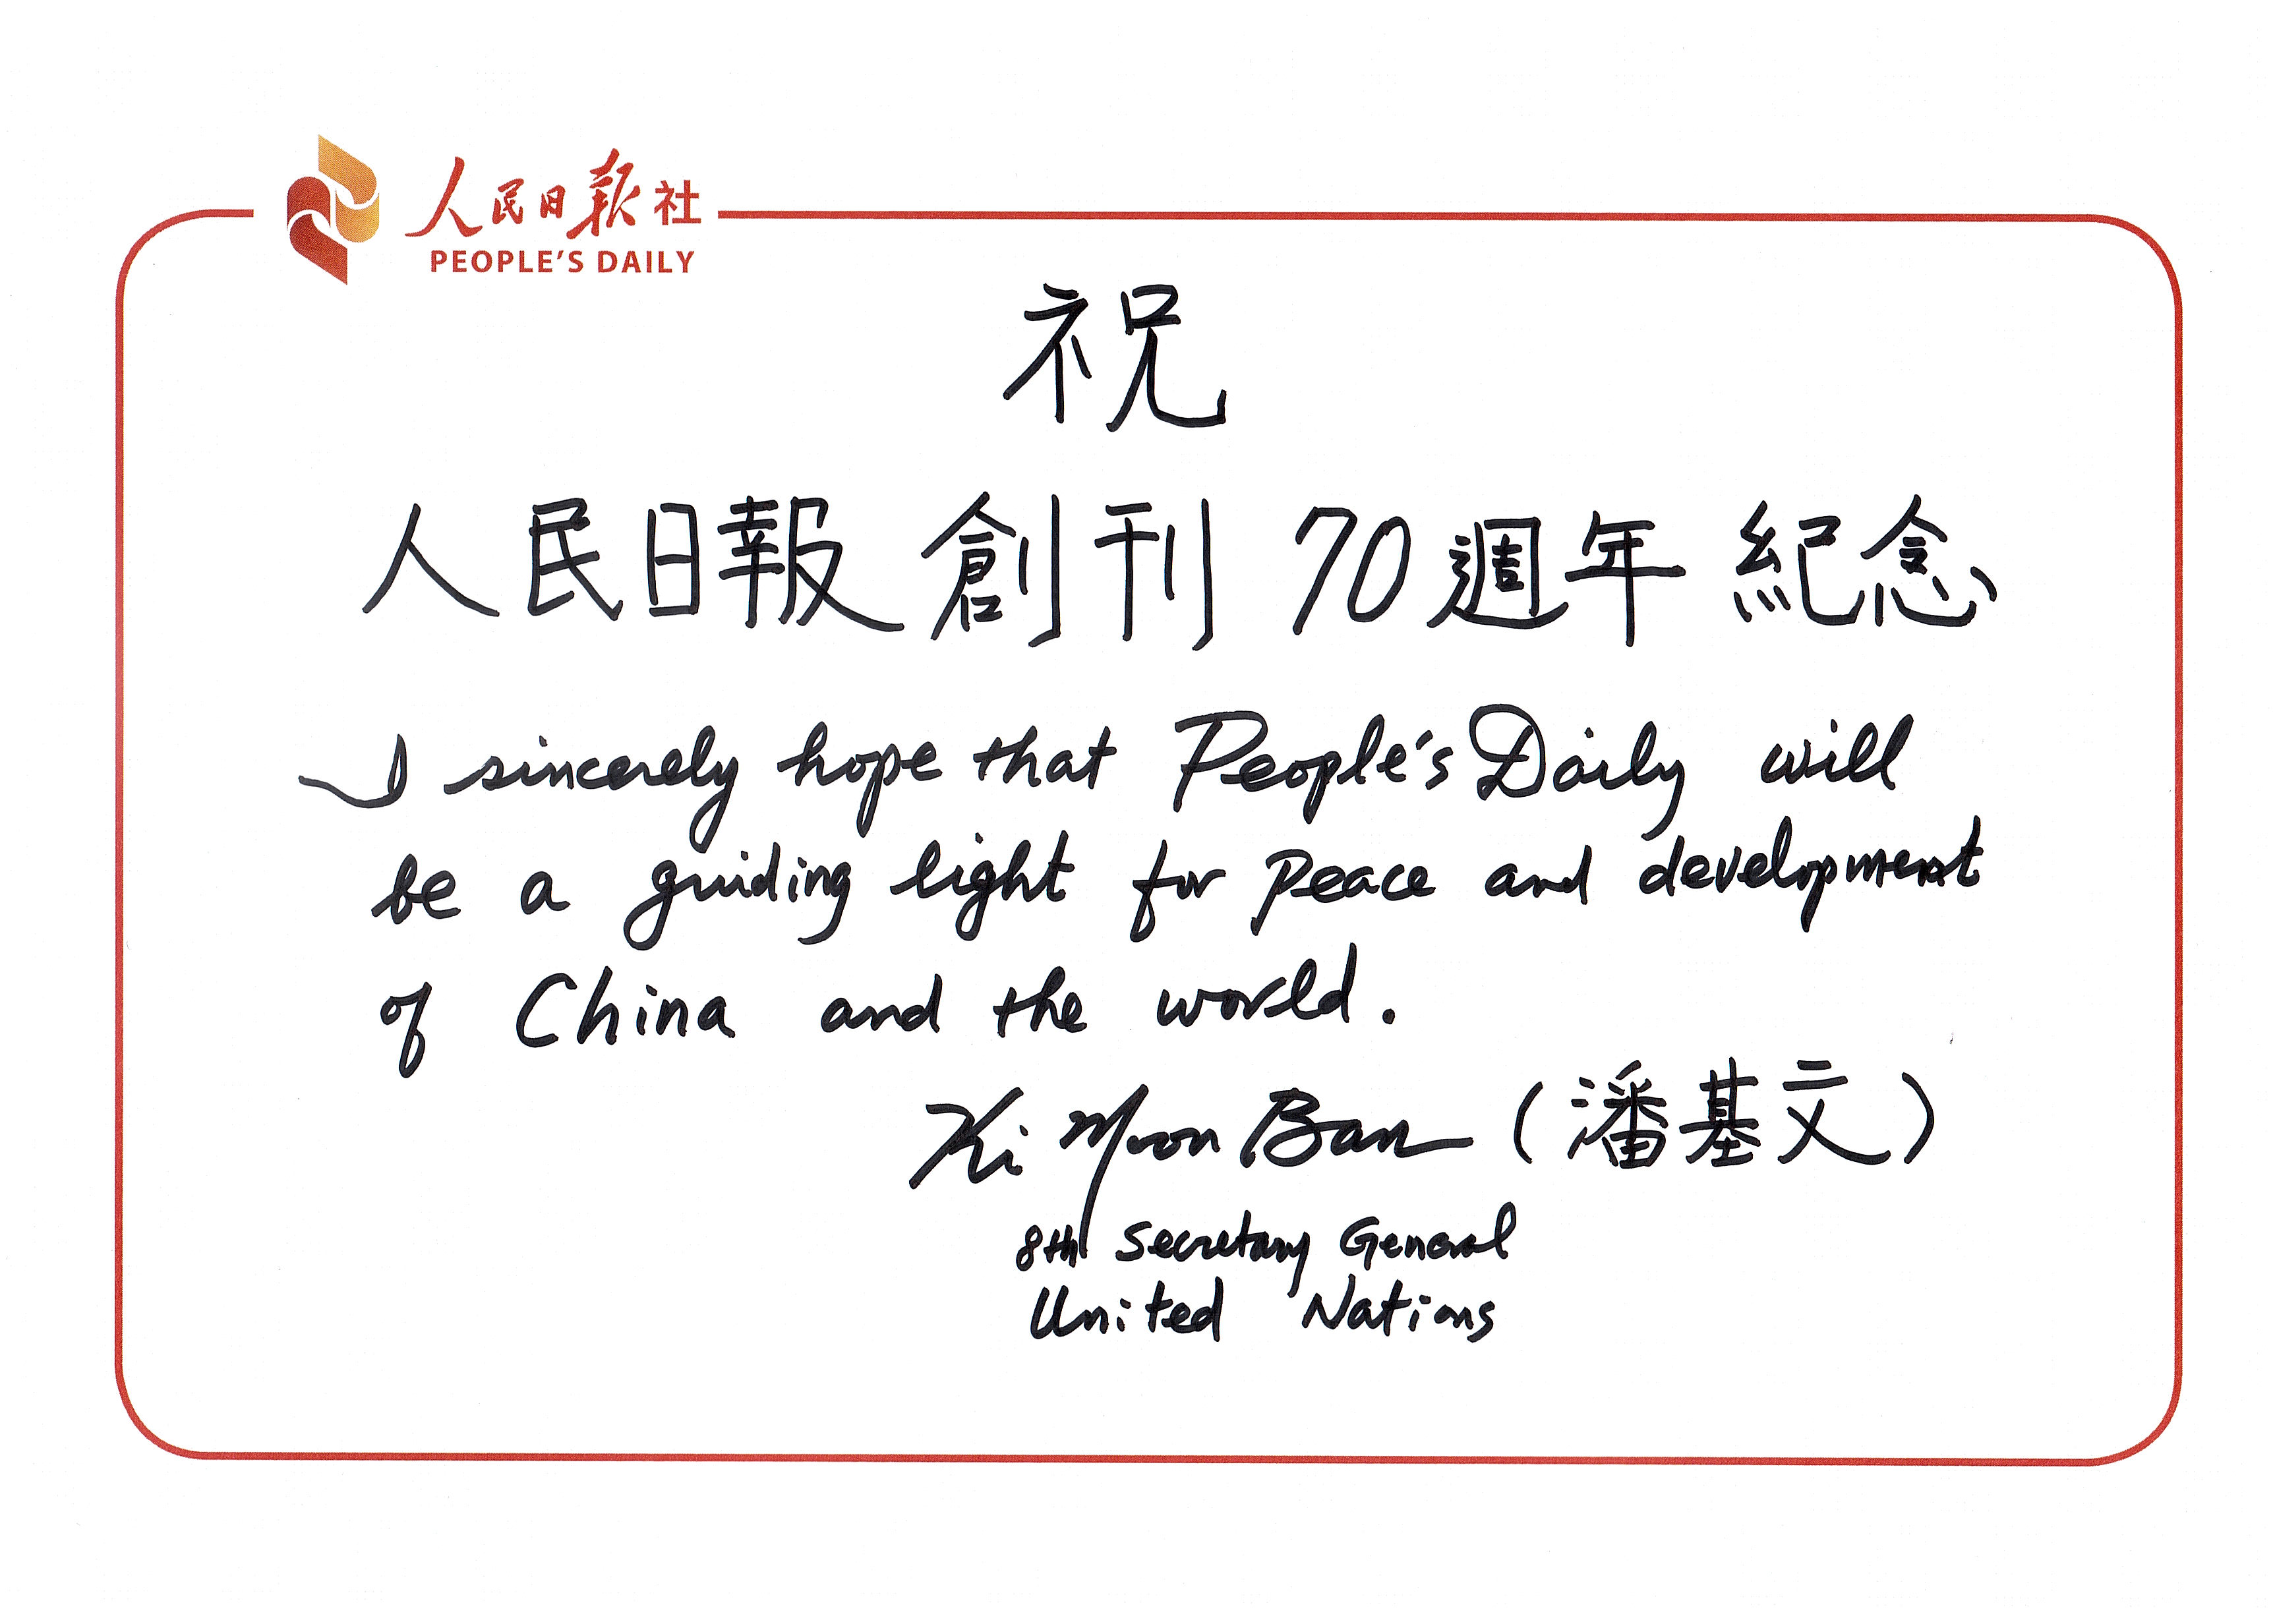 人民日报社
PEOPLE'S DAILY
祝
人民日報 創刊 70週年 紀念
I sincerely hope that People's Daily will
be a guiding light for peace and development
of China and the world.
Ki Moon Ban (潘基文)
8th Secretary General
United Nations